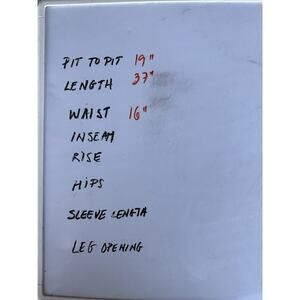 PIT TO PIT 19"
LENGTH 37"
WAIST 16"
INSEAM
RISE
HiPS
SLEEVE LENGTH
LEG OPENING